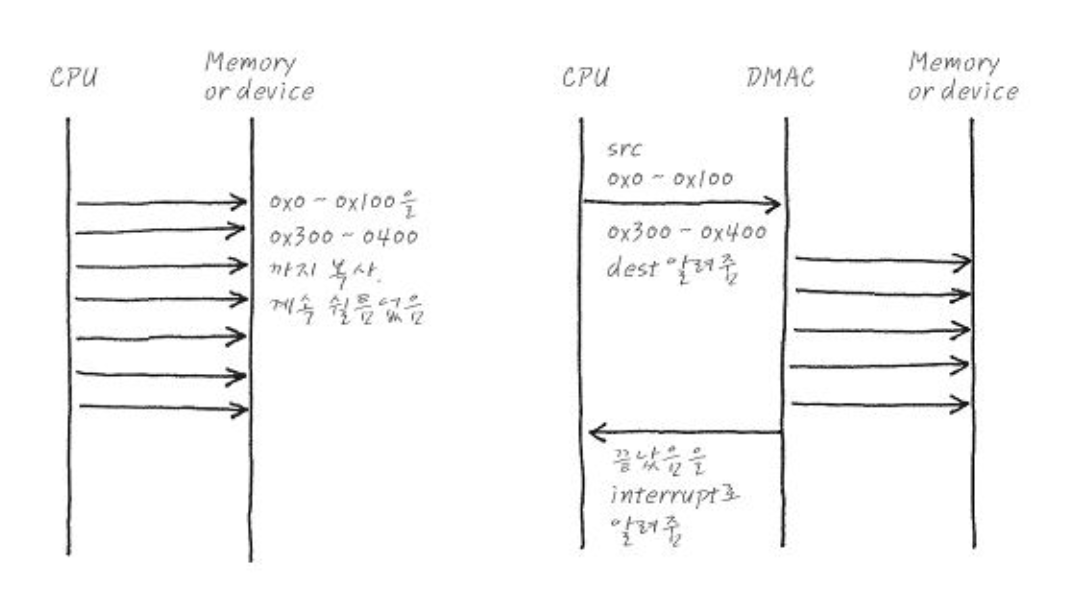 CPU
Memory
or device
0x0 ~ 0x100을
0x300 ~ 0400
까지 복사.
계속 쉴틈없음
CPU
DMAC
Memory
or device
src
0x0 ~ 0x100
0x300 ~ 0x400
dest 알려줌
끝났음을
interrupt로
알려줌